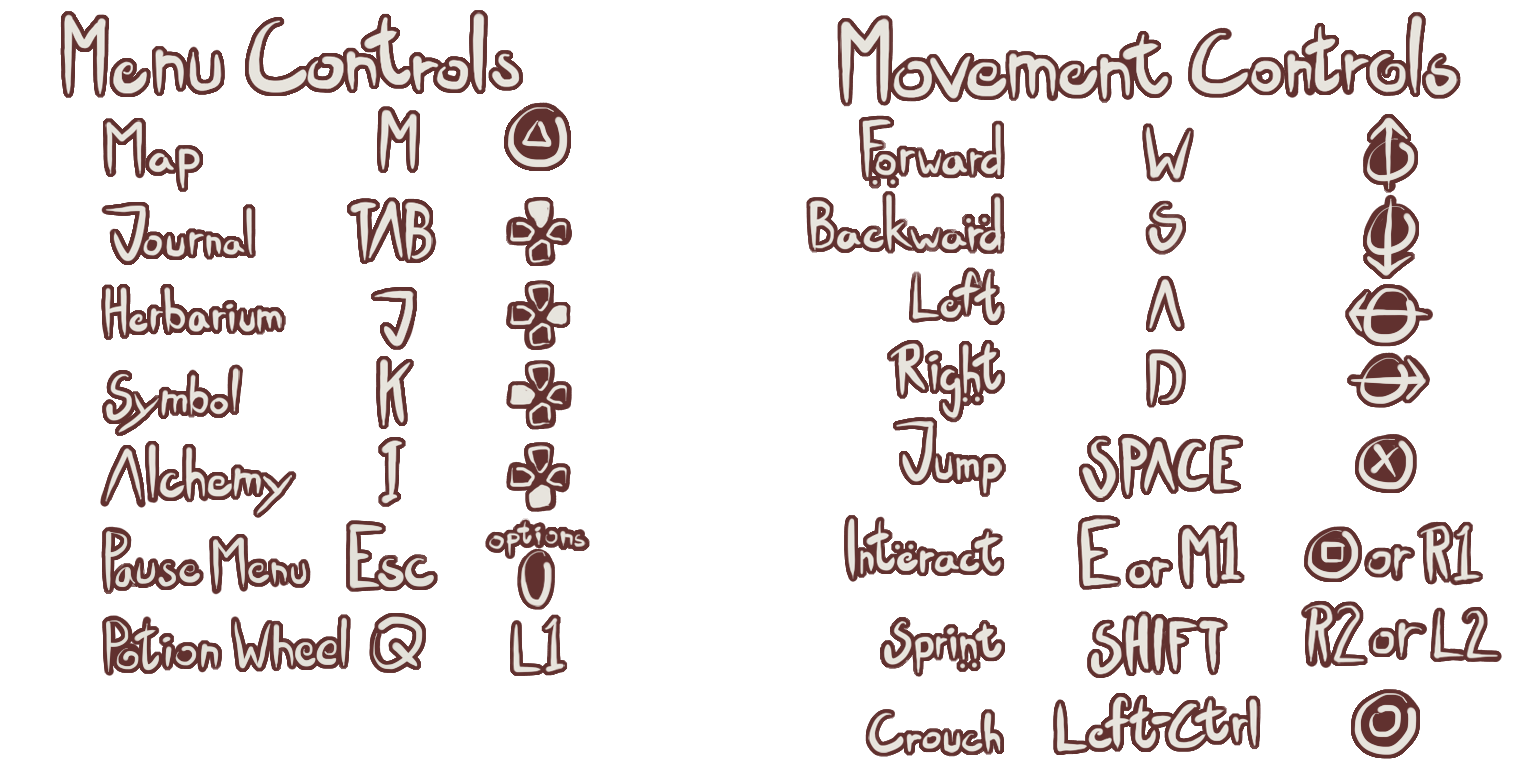 Menu Controls
Map M
Journal TAB
Herbarium J
Symbol K
Alchemy I
Pause Menu Esc options
Potion Wheel Q L1
Movement Controls
Forward W
Backward S
Left A
Right D
Jump SPACE X
Interact E or M1 or R1
Sprint SHIFT R2 or L2
Crouch Left-Ctrl